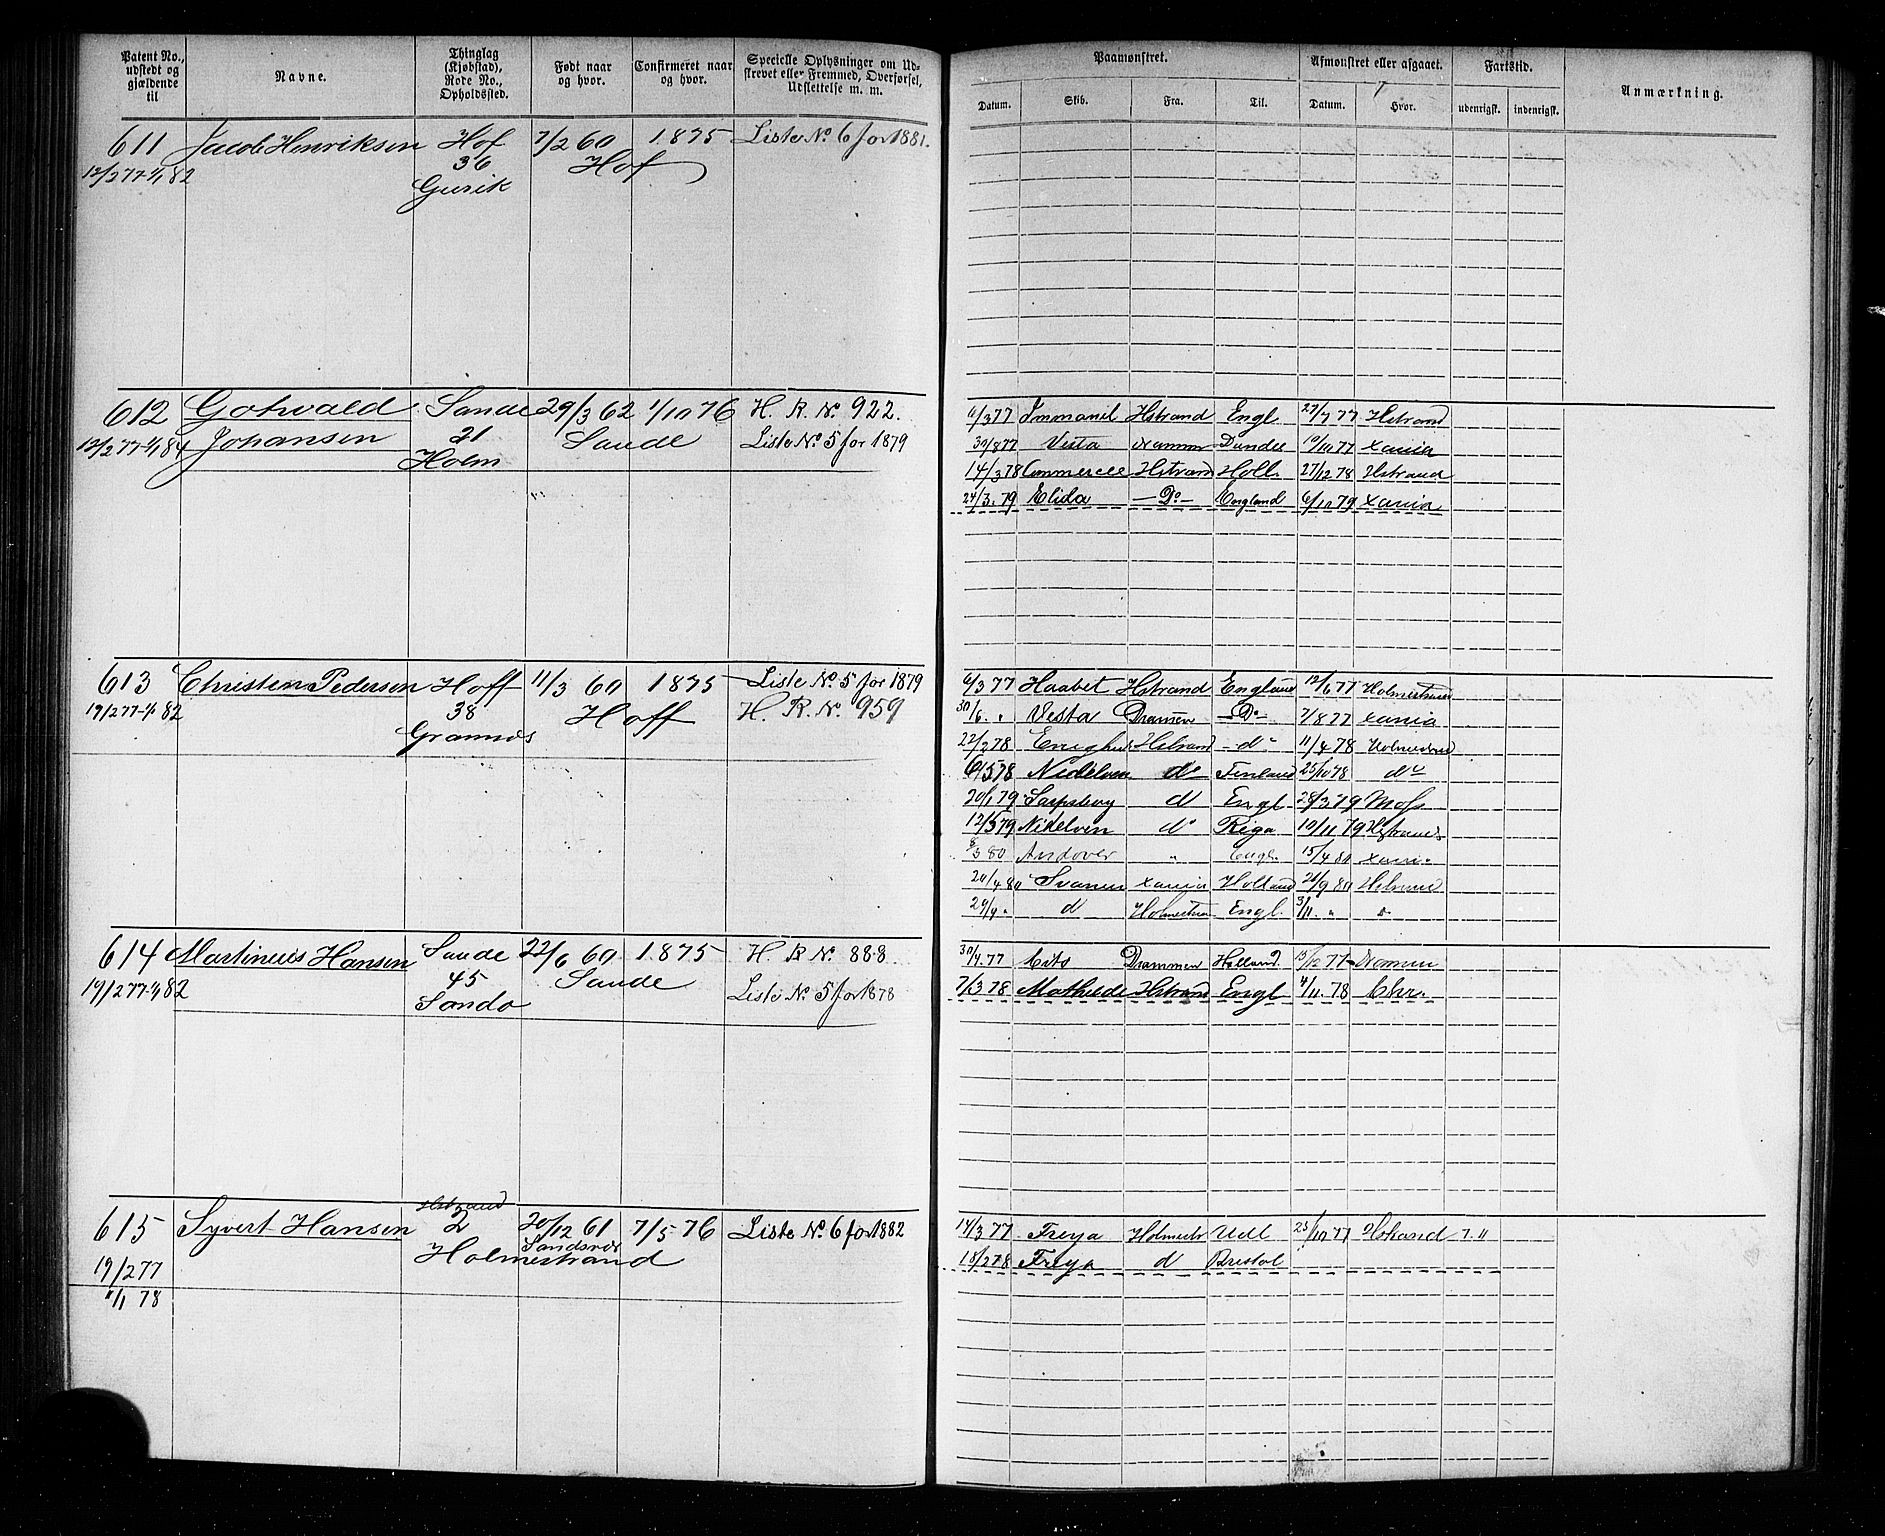 Patent No., udstedt og gjældende til
Navne.
Thinglag (Kjøbstad), Rode No., Opholdssted.
Født naar og hvor.
Confirmeret naar og hvor.
Specielle Oplysninger om Udskrevet eller Fremmed, Overførsel, Udslettelse m. m.
Paamønstret.
Afmønstret eller afgaaet.
Fartstid.
Anmærkning.
Datum. Skib. Fra. Til. Datum. Hvor. udenrigsk. indenrigsk.
611 Jacob Henriksen Hof 7/2 60 1875 Liste No 6 for 1881.
12/2 77-1/1 82 36 Hof
Gusik
612 Gotwald Sande 29/3 62 1/10 76 H. R. No 922.
12/2 77-1/1 84 Johansen 21 Sande Liste No 5 for 1879
Holm
6/3 77 Immanil Hstrand Engl 27/7 77 Hstrand
30/8 77 Vesta Drammen Dundee 10/10 77 Xania
14/3 78 Commercee Hstrand Holl. 27/12 78 Hstrand
24/3. 79 Elida - Do - England 6/10 79 Xania
613 Christen Pedersen Hoff 11/3 60 1875 Liste No 5 for 1879
19/2 77-1/1 82 38 Hoff H. R. No. 959
Grannes
6/3 77 Haabet Hstrand England 12/6 77 Holmestrand
30/6. " Vesta Dramen - Do - 7/8 77 Xania
22/2 78 Enighed Hstrand - do 11/4 78 Holmestrand
6/5 78 Nidelven do Finland 25/10 78 do
20/1 79 Sarpsborg d Engl 28/3 79 Moss
12/5 79 Nidelven do Riga 10/11 79 Hstrand
8/3 80 Andover " Engl. 15/4 80 Xania
20/4 80 Svanen Xania Holland 21/9 80 Hstrand
29/9 " d Holmestran Engl. 3/11. " "
614 Martinius Hansen Sande 22/6 60 1875 H. R No 888
19/2 77-1/1 82 45 Sande Liste No 5 for 1878
Sando
30/4. 77 Cito Drammen Holland. 15/12 77 Drammen
7/3 78 Mathilde Hstrand Engl 4/11. 78 Chr.
615 Syvert Hansen Hstrand 20/12 61 7/5 76 Liste No 6 for 1882
2 Sandsvær
19/2 77 Holmestrand
1/1 78
14/3 77 Freya Holmestr Udl 23/10 77 Hstrand 7. 11
18/2 78 Freya d Bristol